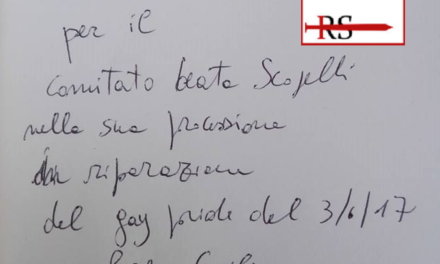 RS
per il
Comitato beata Scopelli
nella sua processione
di riparazione
del gay pride del 3/6/17